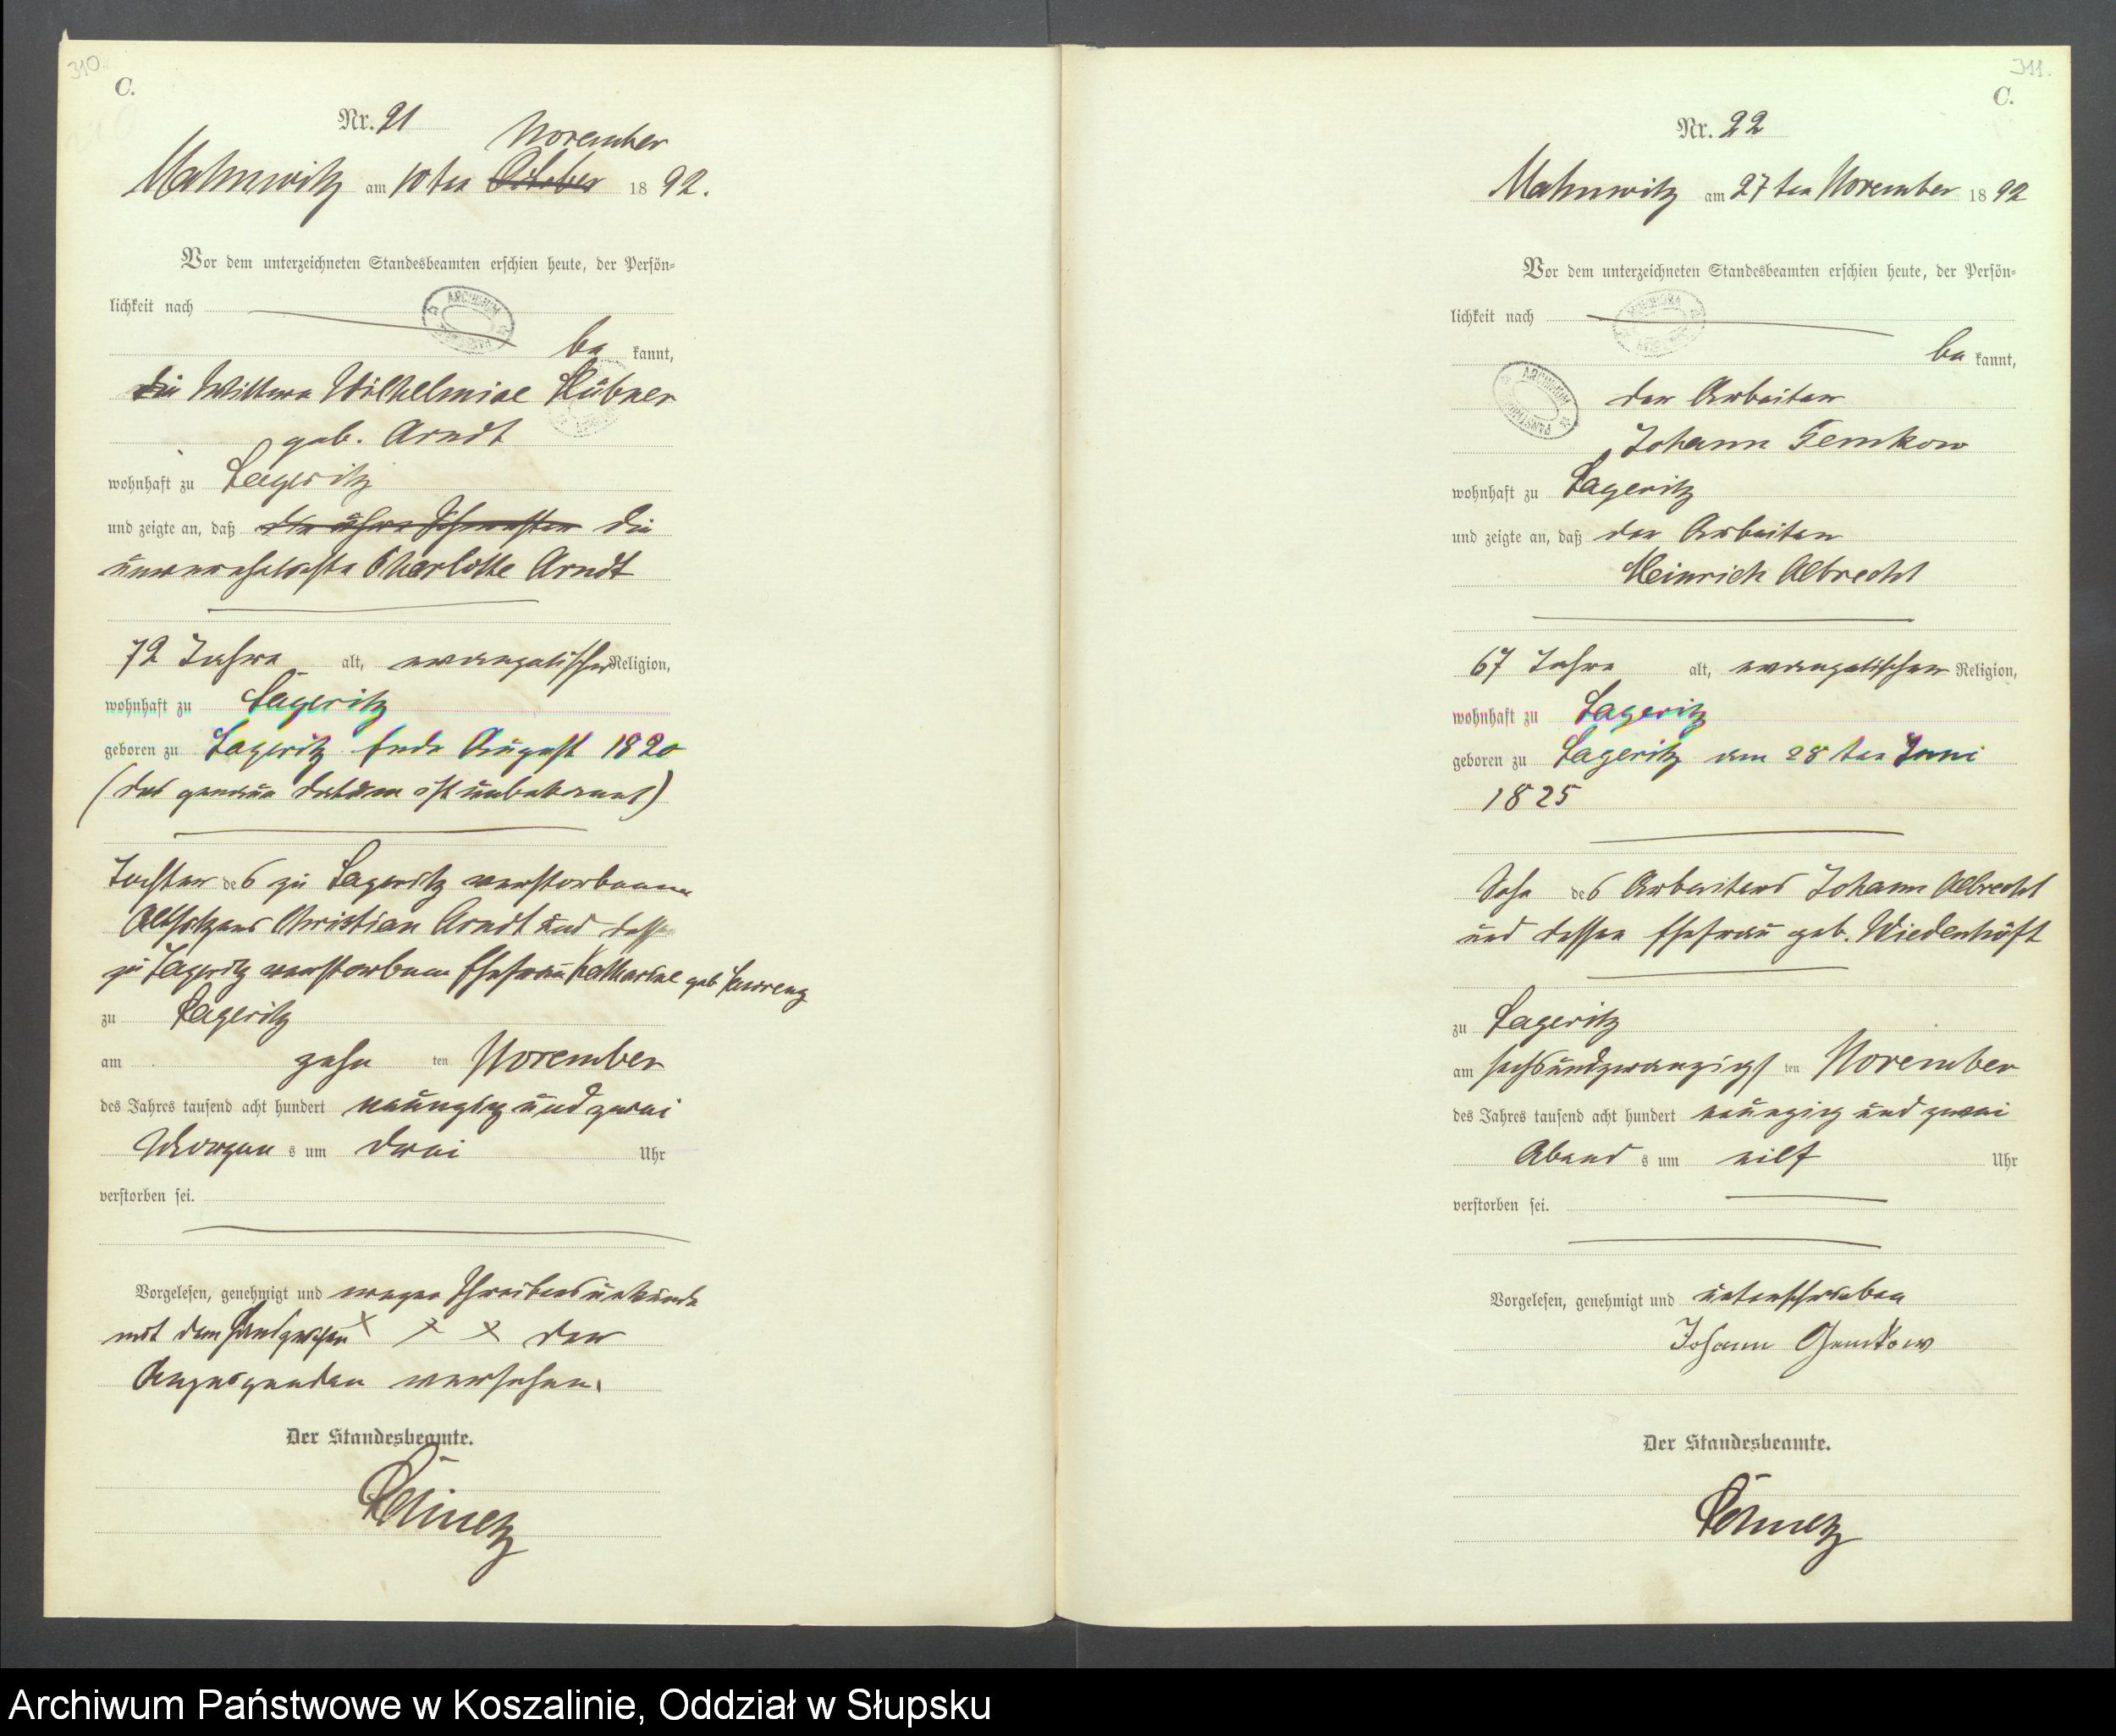 310.
C.
Nr. 21
November
Mahnwitz am 10ten October 1892.
Vor dem unterzeichneten Standesbeamten erschien heute, der Persön=
lichkeit nach
be kannt,
die Wittwe Wilhelmine Hübner
geb. Arndt
wohnhaft zu Lageritz
und zeigte an, daß die
unverehelichte Charlotte Arndt
72 Jahre alt, evangelischer Religion,
wohnhaft zu Lageritz
geboren zu Lageritz Ende August 1820
(das genaue Datum ist unbekannt)
Tochter des zu Lageritz verstorbenen
Altsitzers Christian Arndt und dessen
zu Lageritz verstorbenen Ehefrau Katharine geb
zu Lageritz
am zehn ten November
des Jahres tausend acht hundert neunzig und zwei
Morgen s um drei Uhr
verstorben sei.
Vorgelesen, genehmigt und wegen Schreibensunkunde
mit dem Handzeichen x x x der
Anzeigenden versehen.
Der Standesbeamte.
311.
C.
Nr. 22
Mahnwitz am 27ten November 1892
Vor dem unterzeichneten Standesbeamten erschien heute, der Persön=
lichkeit nach
be kannt,
der Arbeiter
Johann Gemkow
wohnhaft zu Lageritz
und zeigte an, daß der Arbeiter
Heinrich Albrecht
67 Jahre alt, evangelischer Religion,
wohnhaft zu Lageritz
geboren zu Lageritz am 28ten Juni
1825
Sohn des Arbeiters Johann Albrecht
und dessen Ehefrau geb. Wiedenhöft
zu Lageritz
am sechsundzwanzigs ten November
des Jahres tausend acht hundert neunzig und zwei
Abend s um eilf Uhr
verstorben sei.
Vorgelesen, genehmigt und unterschrieben
Johann Gemkow
Der Standesbeamte.
Archiwum Państwowe w Koszalinie, Oddział w Słupsku